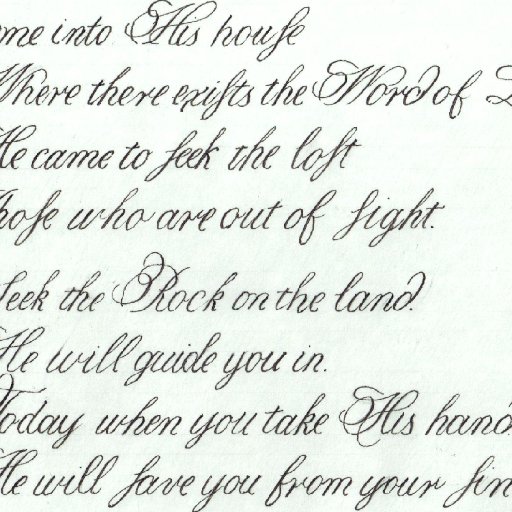 me into His houſe
Where there exiſts the Word of
He came to ſeek the loſt
hoſe who are out of ſight.
ſeek the Rock on the land.
He will guide you in.
Today when you take His hand
He will ſave you from your ſin